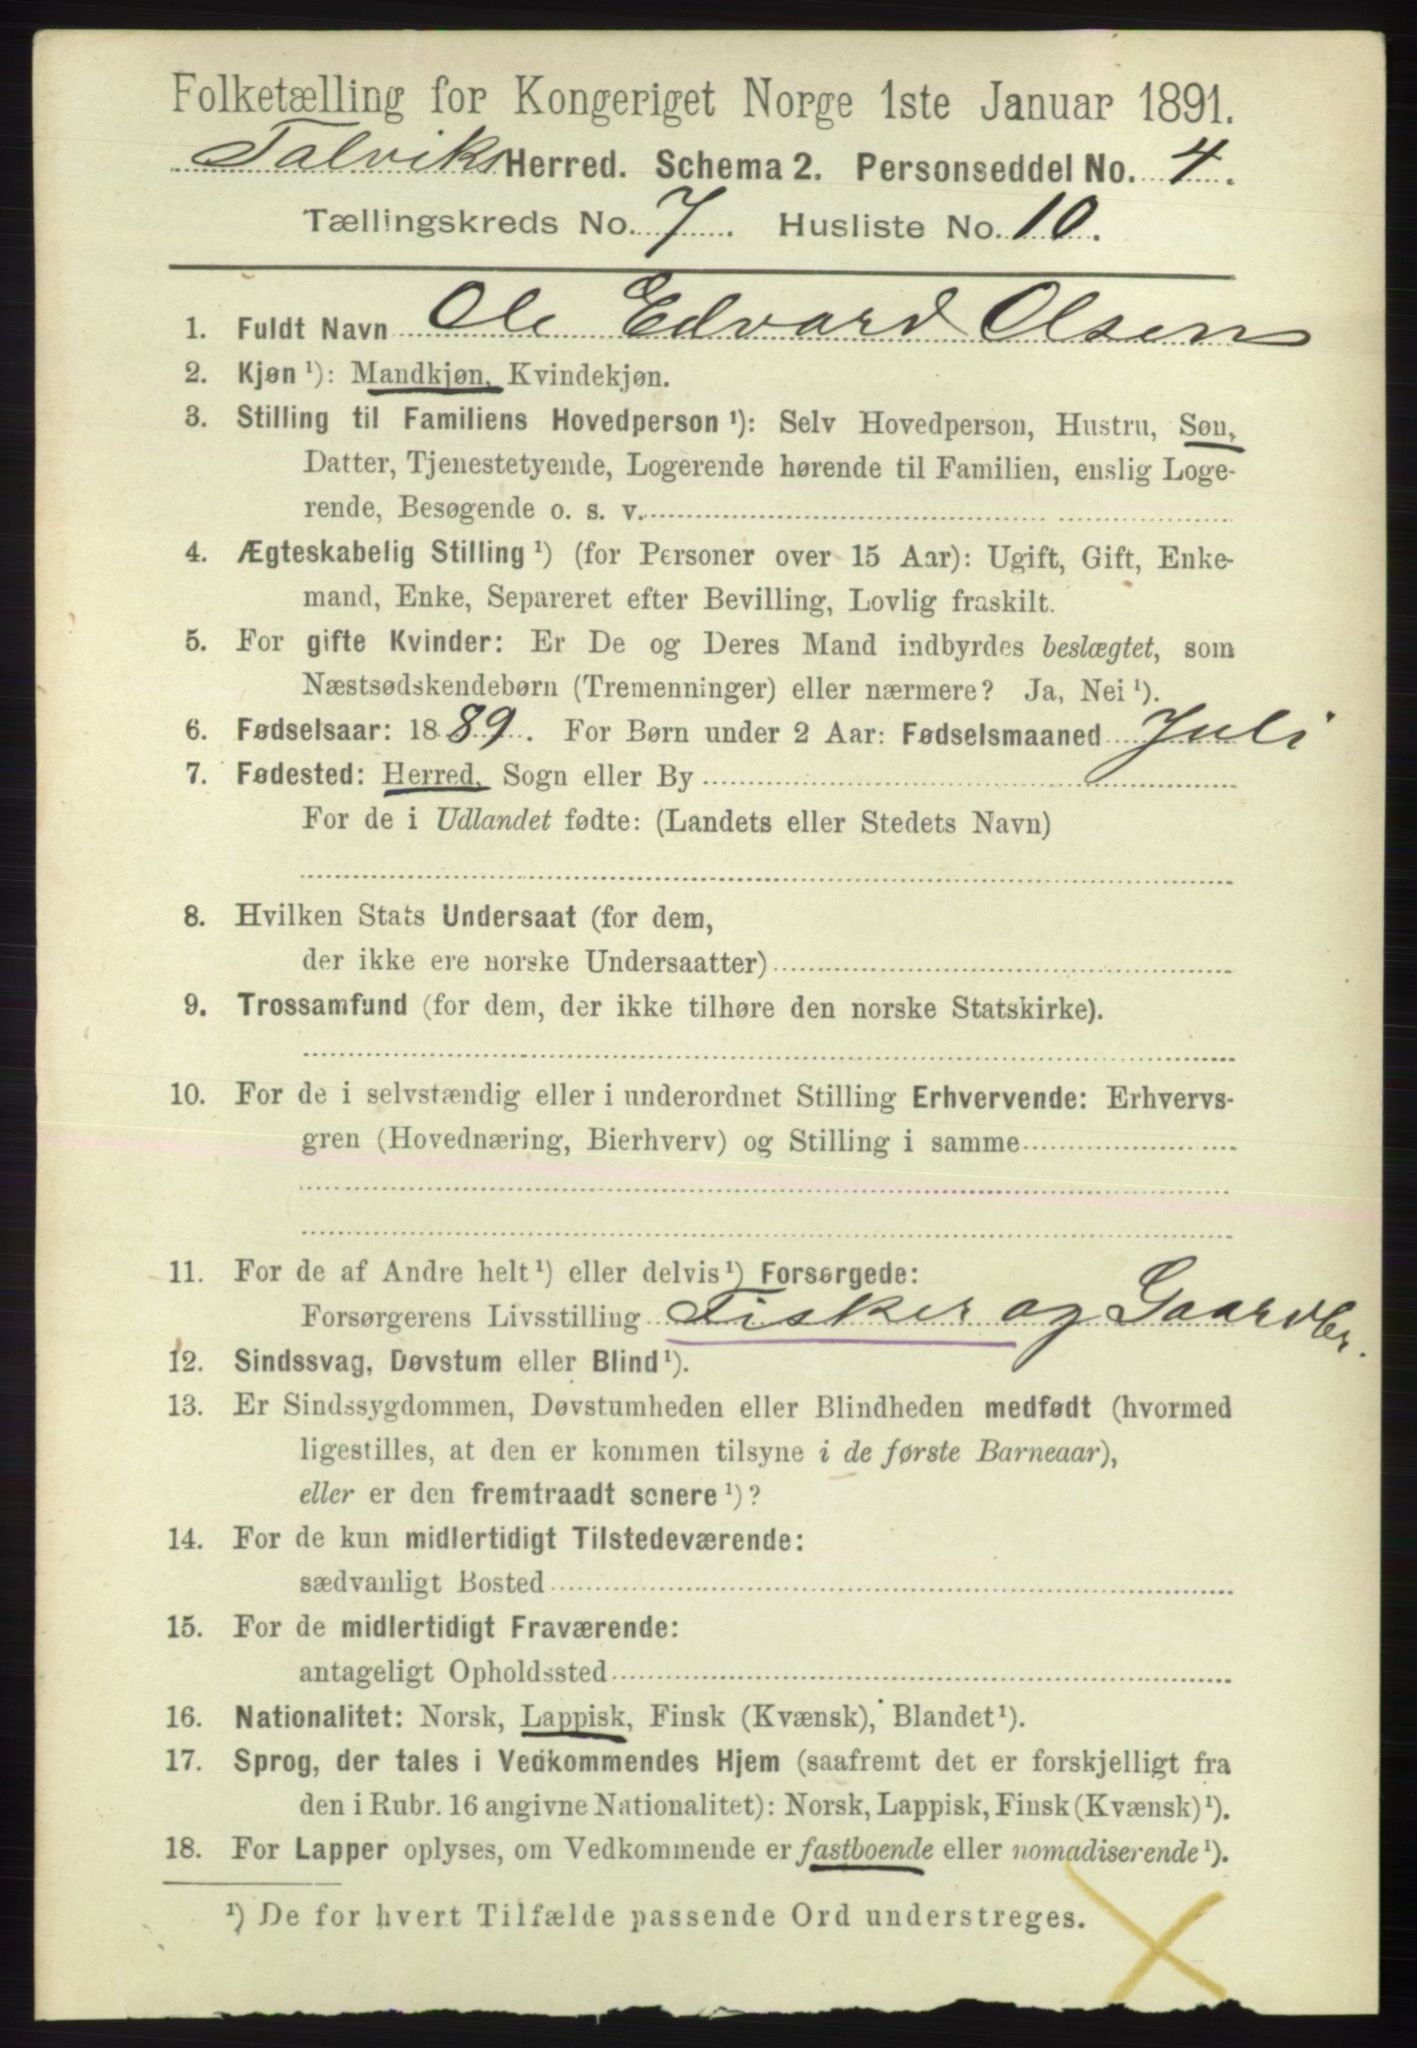 Folketælling for Kongeriget Norge 1ste Januar 1891.
Talviks Herred. Schema 2. Personseddel No. 4.
Tællingskreds No. 7. Husliste No. 10.
1. Fuldt Navn Ole Edvard Olsen
2. Kjøn ¹): Mandkjøn, Kvindekjøn.
3. Stilling til Familiens Hovedperson ¹): Selv Hovedperson, Hustru, Søn,
Datter, Tjenestetyende, Logerende hørende til Familien, enslig Loge-
rende, Besøgende o. s. v.
4. Ægteskabelig Stilling ¹) (for Personer over 15 Aar): Ugift, Gift, Enke-
mand, Enke, Separeret efter Bevilling, Lovlig fraskilt.
5. For gifte Kvinder: Er De og Deres Mand indbyrdes beslægtet, som
Næstsødskendebørn (Tremenninger) eller nærmere? Ja, Nei ¹).
6. Fødselsaar: 1889. For Børn under 2 Aar: Fødselsmaaned Juli
7. Fødested: Herred, Sogn eller By
For de i Udlandet fødte: (Landets eller Stedets Navn)
8. Hvilken Stats Undersaat (for dem,
der ikke ere norske Undersaatter)
9. Trossamfund (for dem, der ikke tilhøre den norske Statskirke).
10. For de i selvstændig eller i underordnet Stilling Erhvervende: Erhvervs-
gren (Hovednæring, Bierhverv) og Stilling i samme
11. For de af Andre helt ¹) eller delvis ¹) Forsørgede:
Forsørgerens Livsstilling Fisker og Gaardbr.
12. Sindssvag, Døvstum eller Blind ¹).
13. Er Sindssygdommen, Døvstumheden eller Blindheden medfødt (hvormed
ligestilles, at den er kommen tilsyne i de første Barneaar),
eller er den fremtraadt senere ¹)?
14. For de kun midlertidigt Tilstedeværende:
sædvanligt Bosted
15. For de midlertidigt Fraværende:
antageligt Opholdssted
16. Nationalitet: Norsk, Lappisk, Finsk (Kvænsk), Blandet ¹).
17. Sprog, der tales i Vedkommendes Hjem (saafremt det er forskjelligt fra
den i Rubr. 16 angivne Nationalitet): Norsk, Lappisk, Finsk (Kvænsk) ¹).
18. For Lapper oplyses, om Vedkommende er fastboende eller nomadiserende ¹).
¹) De for hvert Tilfælde passende Ord understreges.